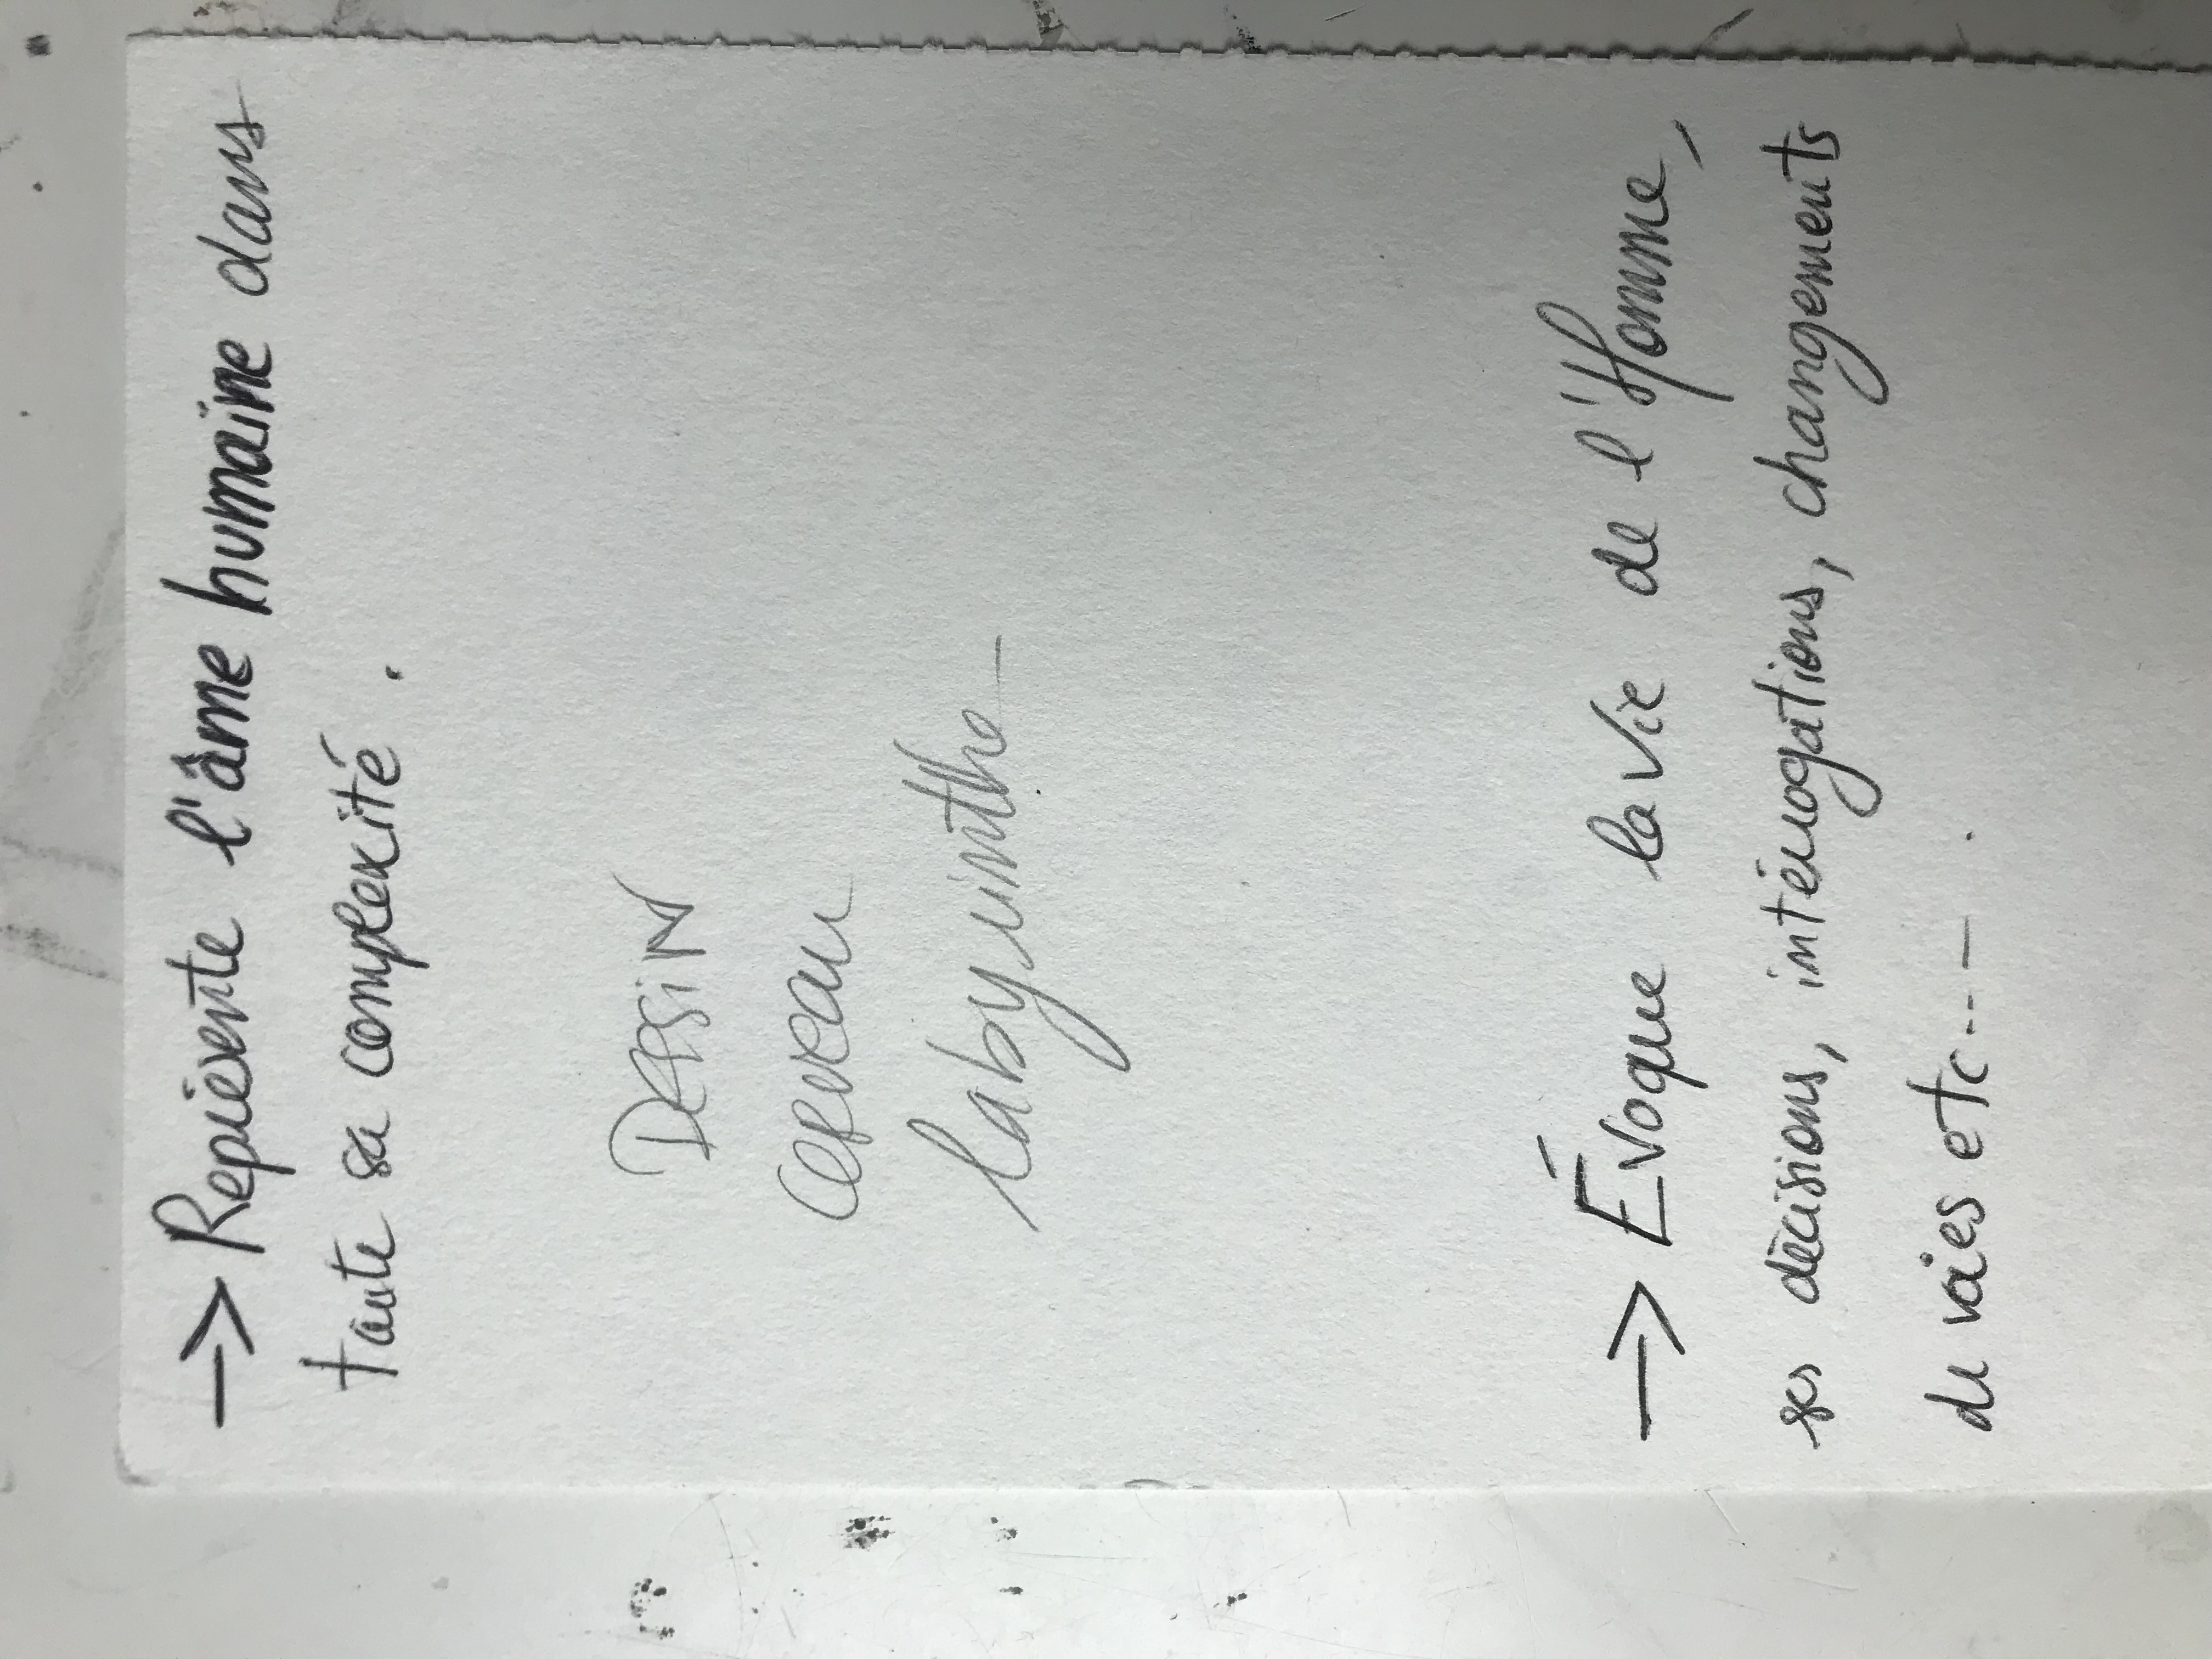 -> Représente l'âme humaine dans
toute sa complexité .
DESSiN
cerveau
labyrinthe
-> Évoque la vie de l'Homme,
ses décisions, intérrogations, changements
de voies etc...